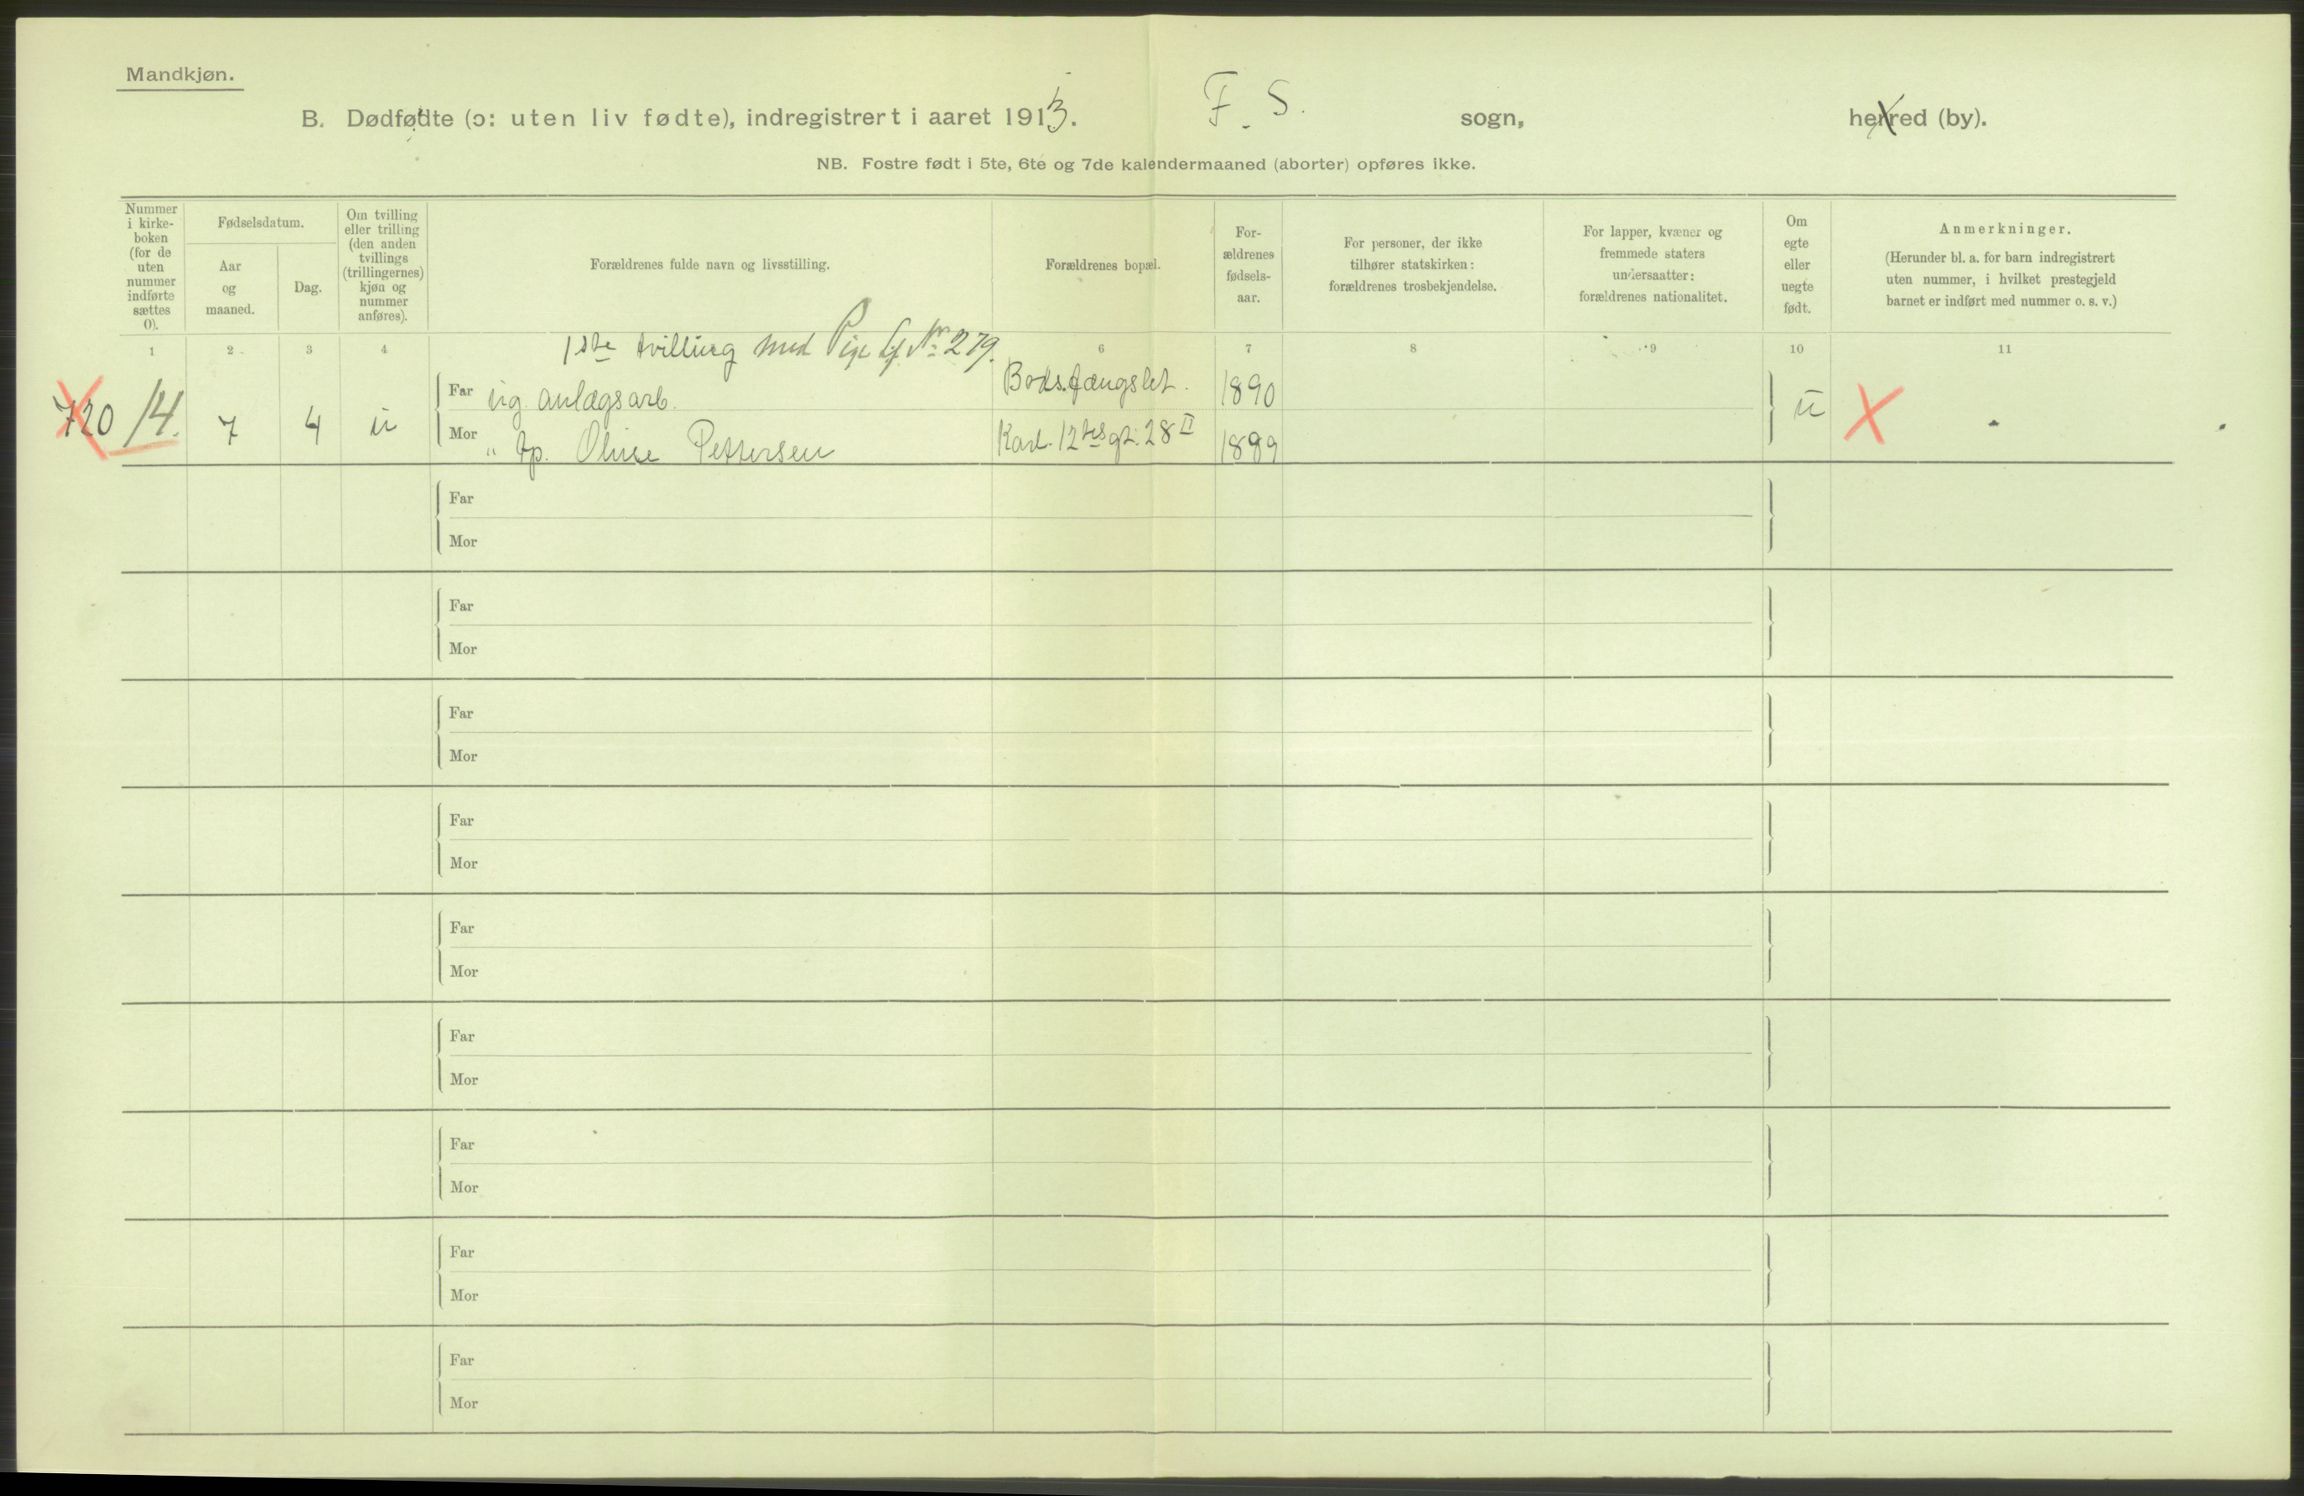 Mandkjøn.
B. Dødfødte (ɔ: uten liv fødte), indregistrert i aaret 1913. F. S. sogn, herred (by).
NB. Fostre født i 5te, 6te og 7de kalendermaaned (aborter) opføres ikke.
Nummer
i kirke-
boken
(for de
uten
nummer
indførte
sættes
0).
Fødselsdatum.
Aar
og
maaned.
Dag.
Om tvilling
eller trilling
(den anden
tvillings
(trillingernes)
kjøn og
nummer
anføres).
Forældrenes fulde navn og livsstilling.
Forældrenes bopæl.
For-
ældrenes
fødsels-
aar.
For personer, der ikke
tilhører statskirken:
forældrenes trosbekjendelse.
For lapper, kvæner og
fremmede staters
undersaatter:
forældrenes nationalitet.
Om
egte
eller
uegte
født.
Anmerkninger.
(Herunder bl. a. for barn indregistrert
uten nummer, i hvilket prestegjeld
barnet er indført med nummer o. s. v.)
1 2 3 4 6 7 8 9 10 11
1ste tvilling med Pige Nr 279.
720 14. 7 4 u
Far ug. anlægsarb. Bodsfængslet. 1890
Mor " tp. Oluse Pettersen Karl 12tes gt. 28 II 1889
u
X
Far
Mor
Far
Mor
Far
Mor
Far
Mor
Far
Mor
Far
Mor
Far
Mor
Far
Mor
Far
Mor